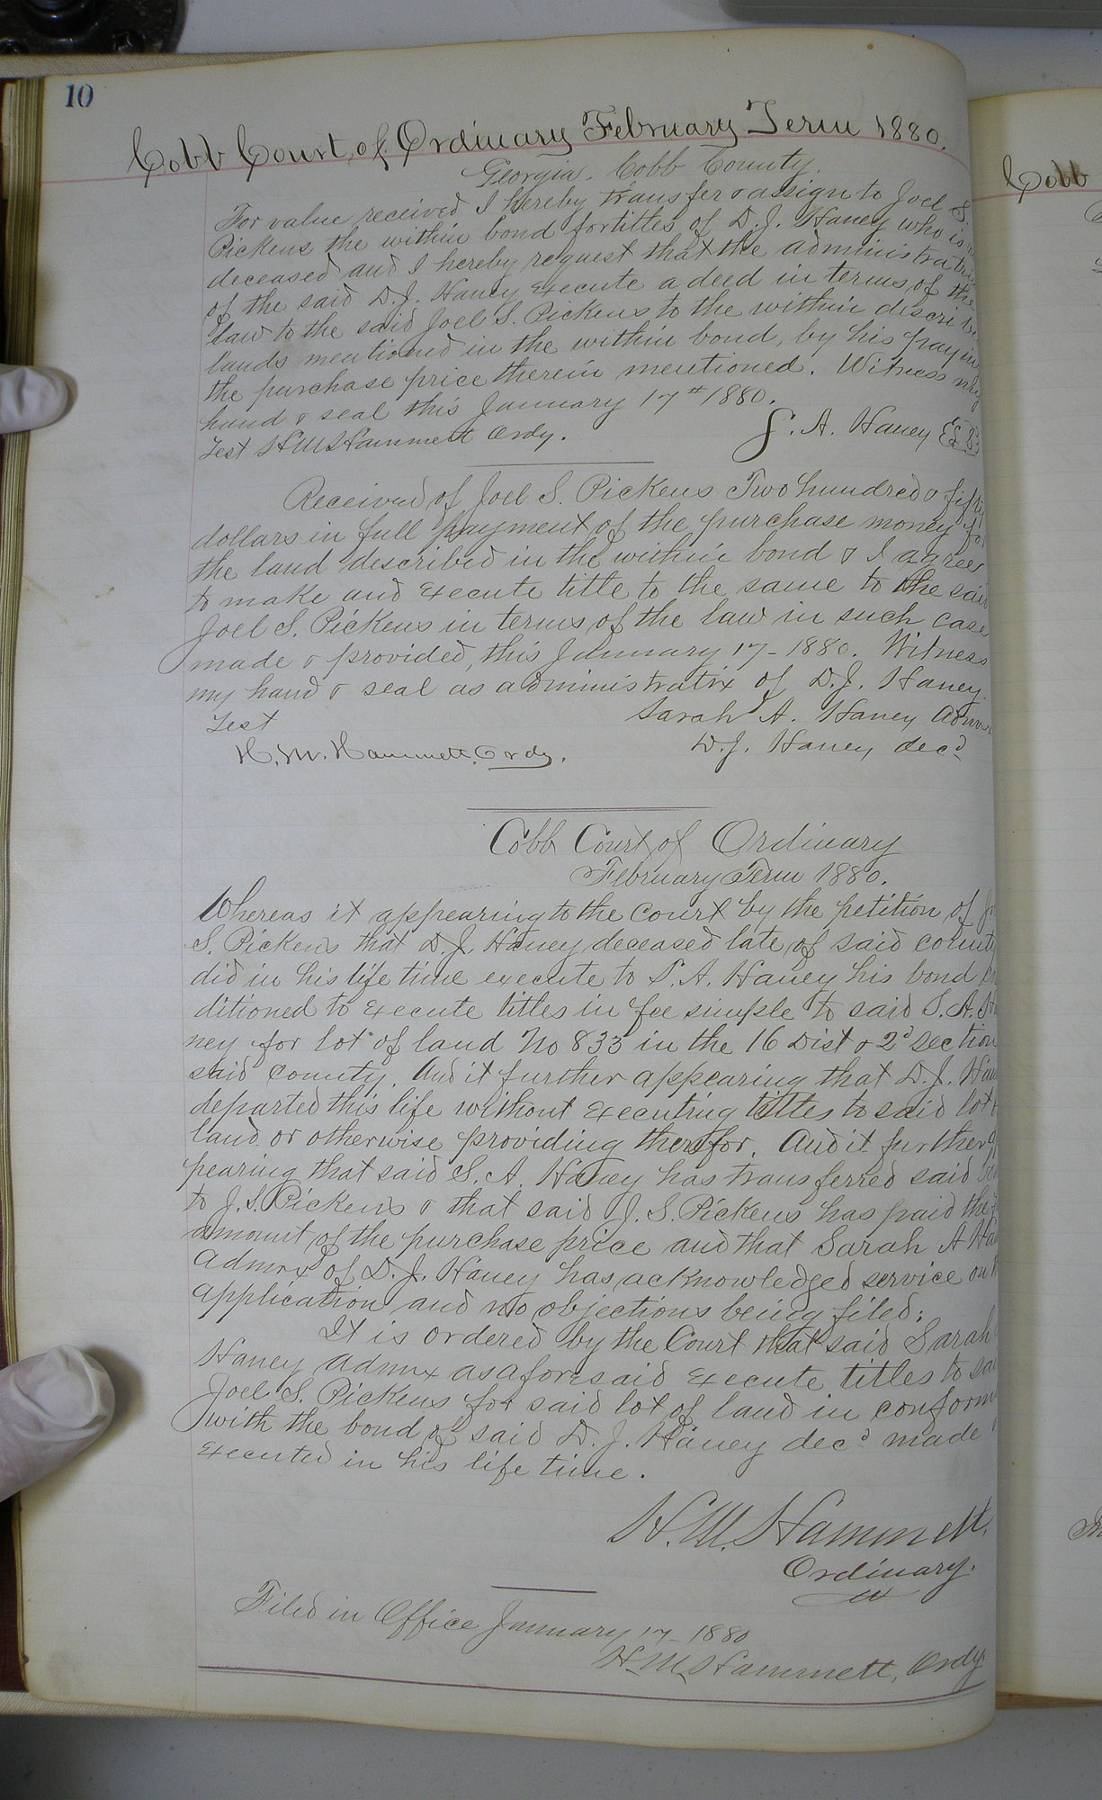 10
Cobb Court of Ordinary February Term 1880.
Georgia. Cobb County.
For value received I hereby transfer & assign to Joel S.
Pickens the within bond for titles of D. J. Haney who is
deceased and I hereby request that the administratrix
of the said D. J. Haney execute a deed in terms of the
law to the said Joel S. Pickens to the within
lands mentioned in the within bond, by his
the purchase price therein mentioned. Witness my
hand & seal this January 17th 1880.
S. A. Haney
Test H M Hammett Ordy.
Received of Joel S. Pickens Two hundred & fifty
dollars in full payment of the purchase money for
the land described in the within bond & I agree
to make and execute title to the same to the said
Joel S. Pickens in terms of the law in such case
made & provided, this January 17 - 1880. Witness
my hand & seal as administratrix of D. J. Haney.
Test Sarah A. Haney
H. M. Hammett, Ordy. D. J. Haney decd
Cobb Court of Ordinary
February Term 1880.
Whereas it appearing to the Court by the petition of
S. Pickens that D. J. Haney deceased late of said
did in his life time execute to S. A. Haney his bond
ditioned to execute titles in fee simple to said S. A.
ney for lot of land No 833 in the 16 Dist & 2d Section
said County. And it further appearing that D. J.
departed this life without executing titles to said lot
land or otherwise providing therefor. And it further
pearing that said S. A. Haney has transferred said
to J. S. Pickens & that said J. S. Pickens has paid the
amount of the purchase price and that Sarah A
Admrx of D. J. Haney has acknowledged service on
application and no objections being filed;
It is ordered by the Court that said Sarah
Haney Admrx as aforesaid execute titles to
Joel S. Pickens for said lot of land in
with the bond of said D. J. Haney decd made
executed in his life time.
H. M. Hammett,
Ordinary.
Filed in Office January 17 - 1880
H. M. Hammett, Ordy.
Cobb